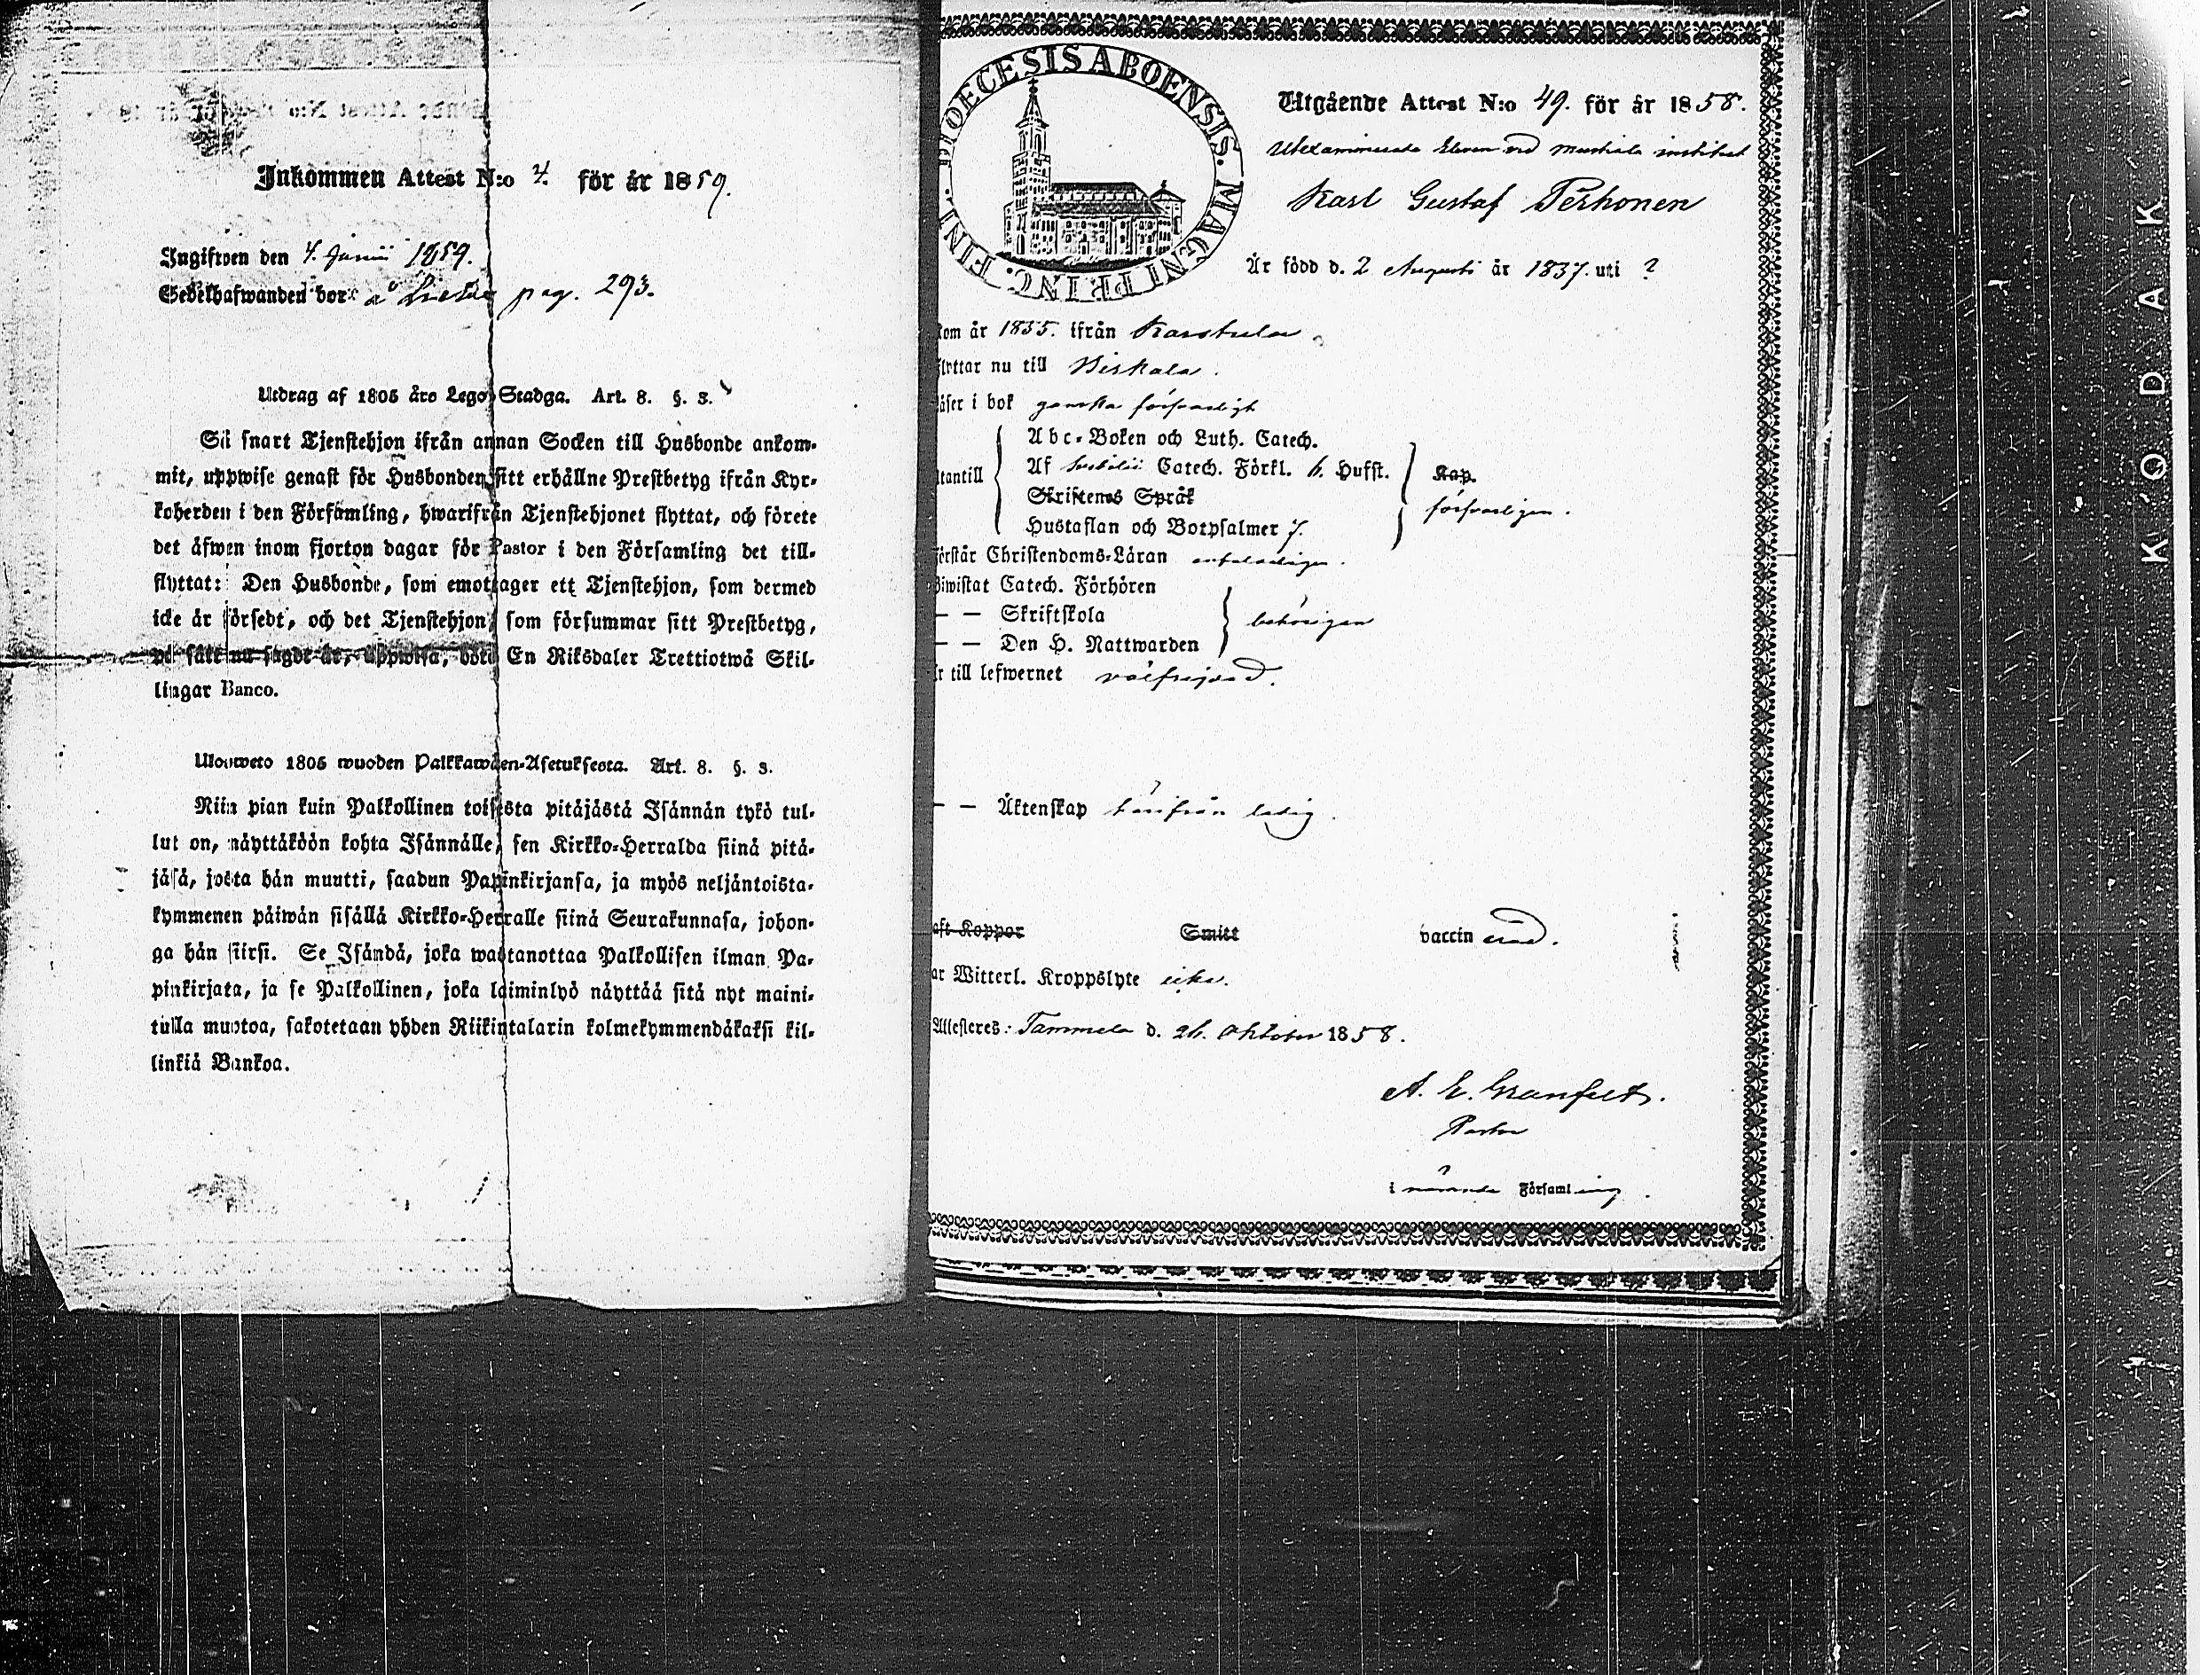 Inkommen Attest N:o 4. för år 1859.
Ingifwen den 4. Junii 1859.
Sedelhafwanden bor: å pag. 293.
Utdrag af 1805 års Lego-Stadga. Art. 8. §. 3.
Så snart Tjenstehjon ifrån annan Socken till Husbonde ankom-
mit, uppwise genast för Husbonden sitt erhållne Prestbetyg ifrån Kyr-
koherden i den Församling, hwarifrån Tjenstehjonet flyttat, och förete
det äfwen inom fjorton dagar för Pastor i den Församling det till-
flyttat: Den Husbonde, som emottager ett Tjenstehjon, som dermed
icke är försedt, och det Tjenstehjon, som försummar sitt Prestbetyg,
på sätt nu sagdt är, uppwisa, böte En Riksdaler Trettiotwå Skil-
lingar Banco.
Ulosweto 1805 wuoden Palkkawäen-Asetuksesta. Art. 8. §. 3.
Niin pian kuin Palkollinen toisesta pitäjästä Isännän tykö tul-
lut on, näyttäköön kohta Isännälle, sen Kirkko-Herralda siinä pitä-
jäsä, josta hän muutti, saadun Papinkirjansa, ja myös neljäntoista-
kymmenen päiwän sisällä Kirkko-Herralle siinä Seurakunnasa, johon-
ga hän siirsi. Se Isändä, joka wastanottaa Palkollisen ilman Pa-
pinkirjata, ja se Palkollinen, joka laiminlyö näyttää sitä nyt maini-
tulla muotoa, sakotetaan yhden Riikintalarin kolmekymmendäkaksi kil-
linkiä Bankoa.
DIOECESIS ABOENSIS. MAGNI PRINC. FINL.
Utgående Attest N:o 49. för år 1858.
Utexaminerade Eleven vid institut
Karl Gustaf Terhonen
Är född d. 2 Augusti år 1837. uti ?
Kom år 1855. ifrån Karstula.
flyttar nu till Kiskala.
läser i bok ganska försvarligt
Abc-Boken och Luth. Catech.
Af Catech. Förkl. h. Hufst. Kap.
utantill
Skriftenes Språk
försvarligen.
Hustaflan och Botpsalmer 7.
förstår Christendoms-Läran
Biwistat Catech. Förhören
— — Skriftskola behörigen
— — Den H. Nattwarden
är till lefwernet välfrejdad.
— — Äktenskap härifrån ledig.
aft Koppor Smitt vaccin
ar Witterl. Kroppslyte icke.
Attesteres: Tammela d. 26. Oktober 1858.
A. E. Granfelt.
Pastor
i nämnde Församling.
KODAK